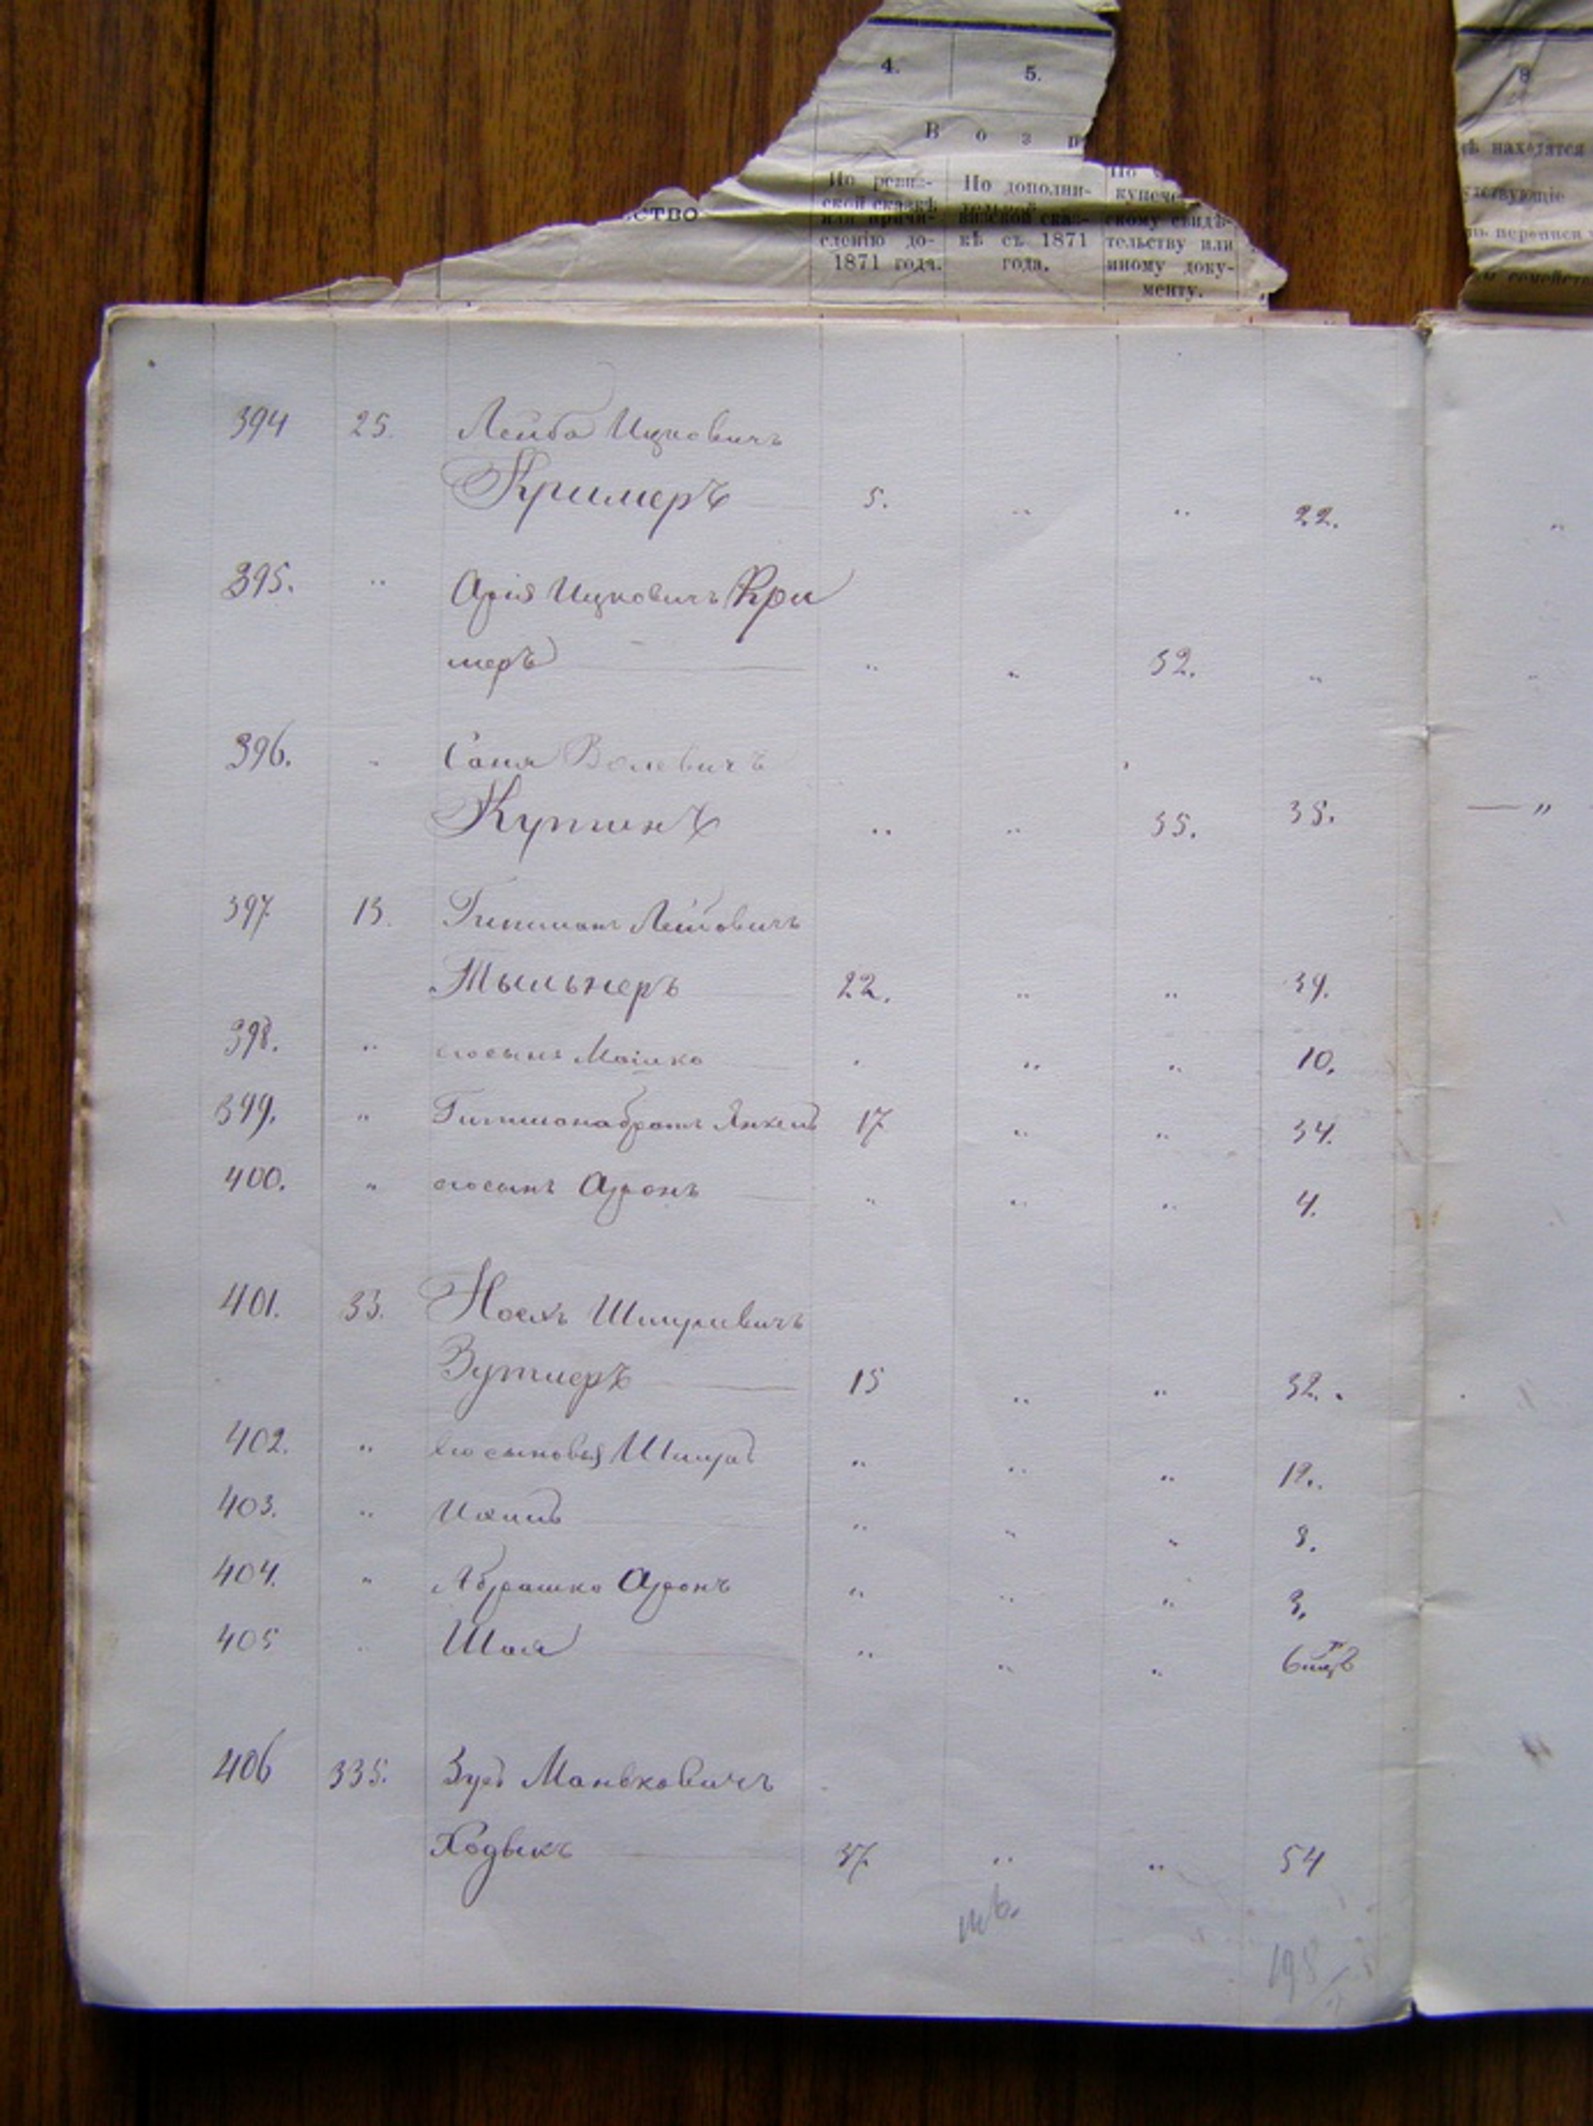 4. 5. 8
В о з р
ство
По ревиз-
ской сказкѣ
или причи-
сленію до-
1871 года.
По дополни-
тельной
визской сказ-
кѣ съ 1871
года.
По
купече-
скому свидѣ-
тельству или
иному доку-
менту.
находятся
утствующіе
переписи
семейст
394 25. Лейба Ицковичъ
Кримеръ 5. " " 22. "
395. " Арія Ицковичъ Кри
меръ " " 52. " "
396. "
" " 35. 35. — "
397 13. Гитманъ Лейбовичъ
Мыльнеръ 22. " " 39.
398. " его сынъ Мошко " " " 10.
399. " Гитмана братъ Янкель 17 " " 34.
400. " его сынъ Аронъ " " " 4.
401. 33. Шмулевичъ
Зутлеръ 15 " " 32.
402. " Его сыновья Шмуль " " " 12.
403. " " " " 8.
404. " Абрашко Аронъ " " " 3.
405 " Шая " " " 6
406 335. Зусь Маньковичъ
Ходыкъ 37. " " 54
195